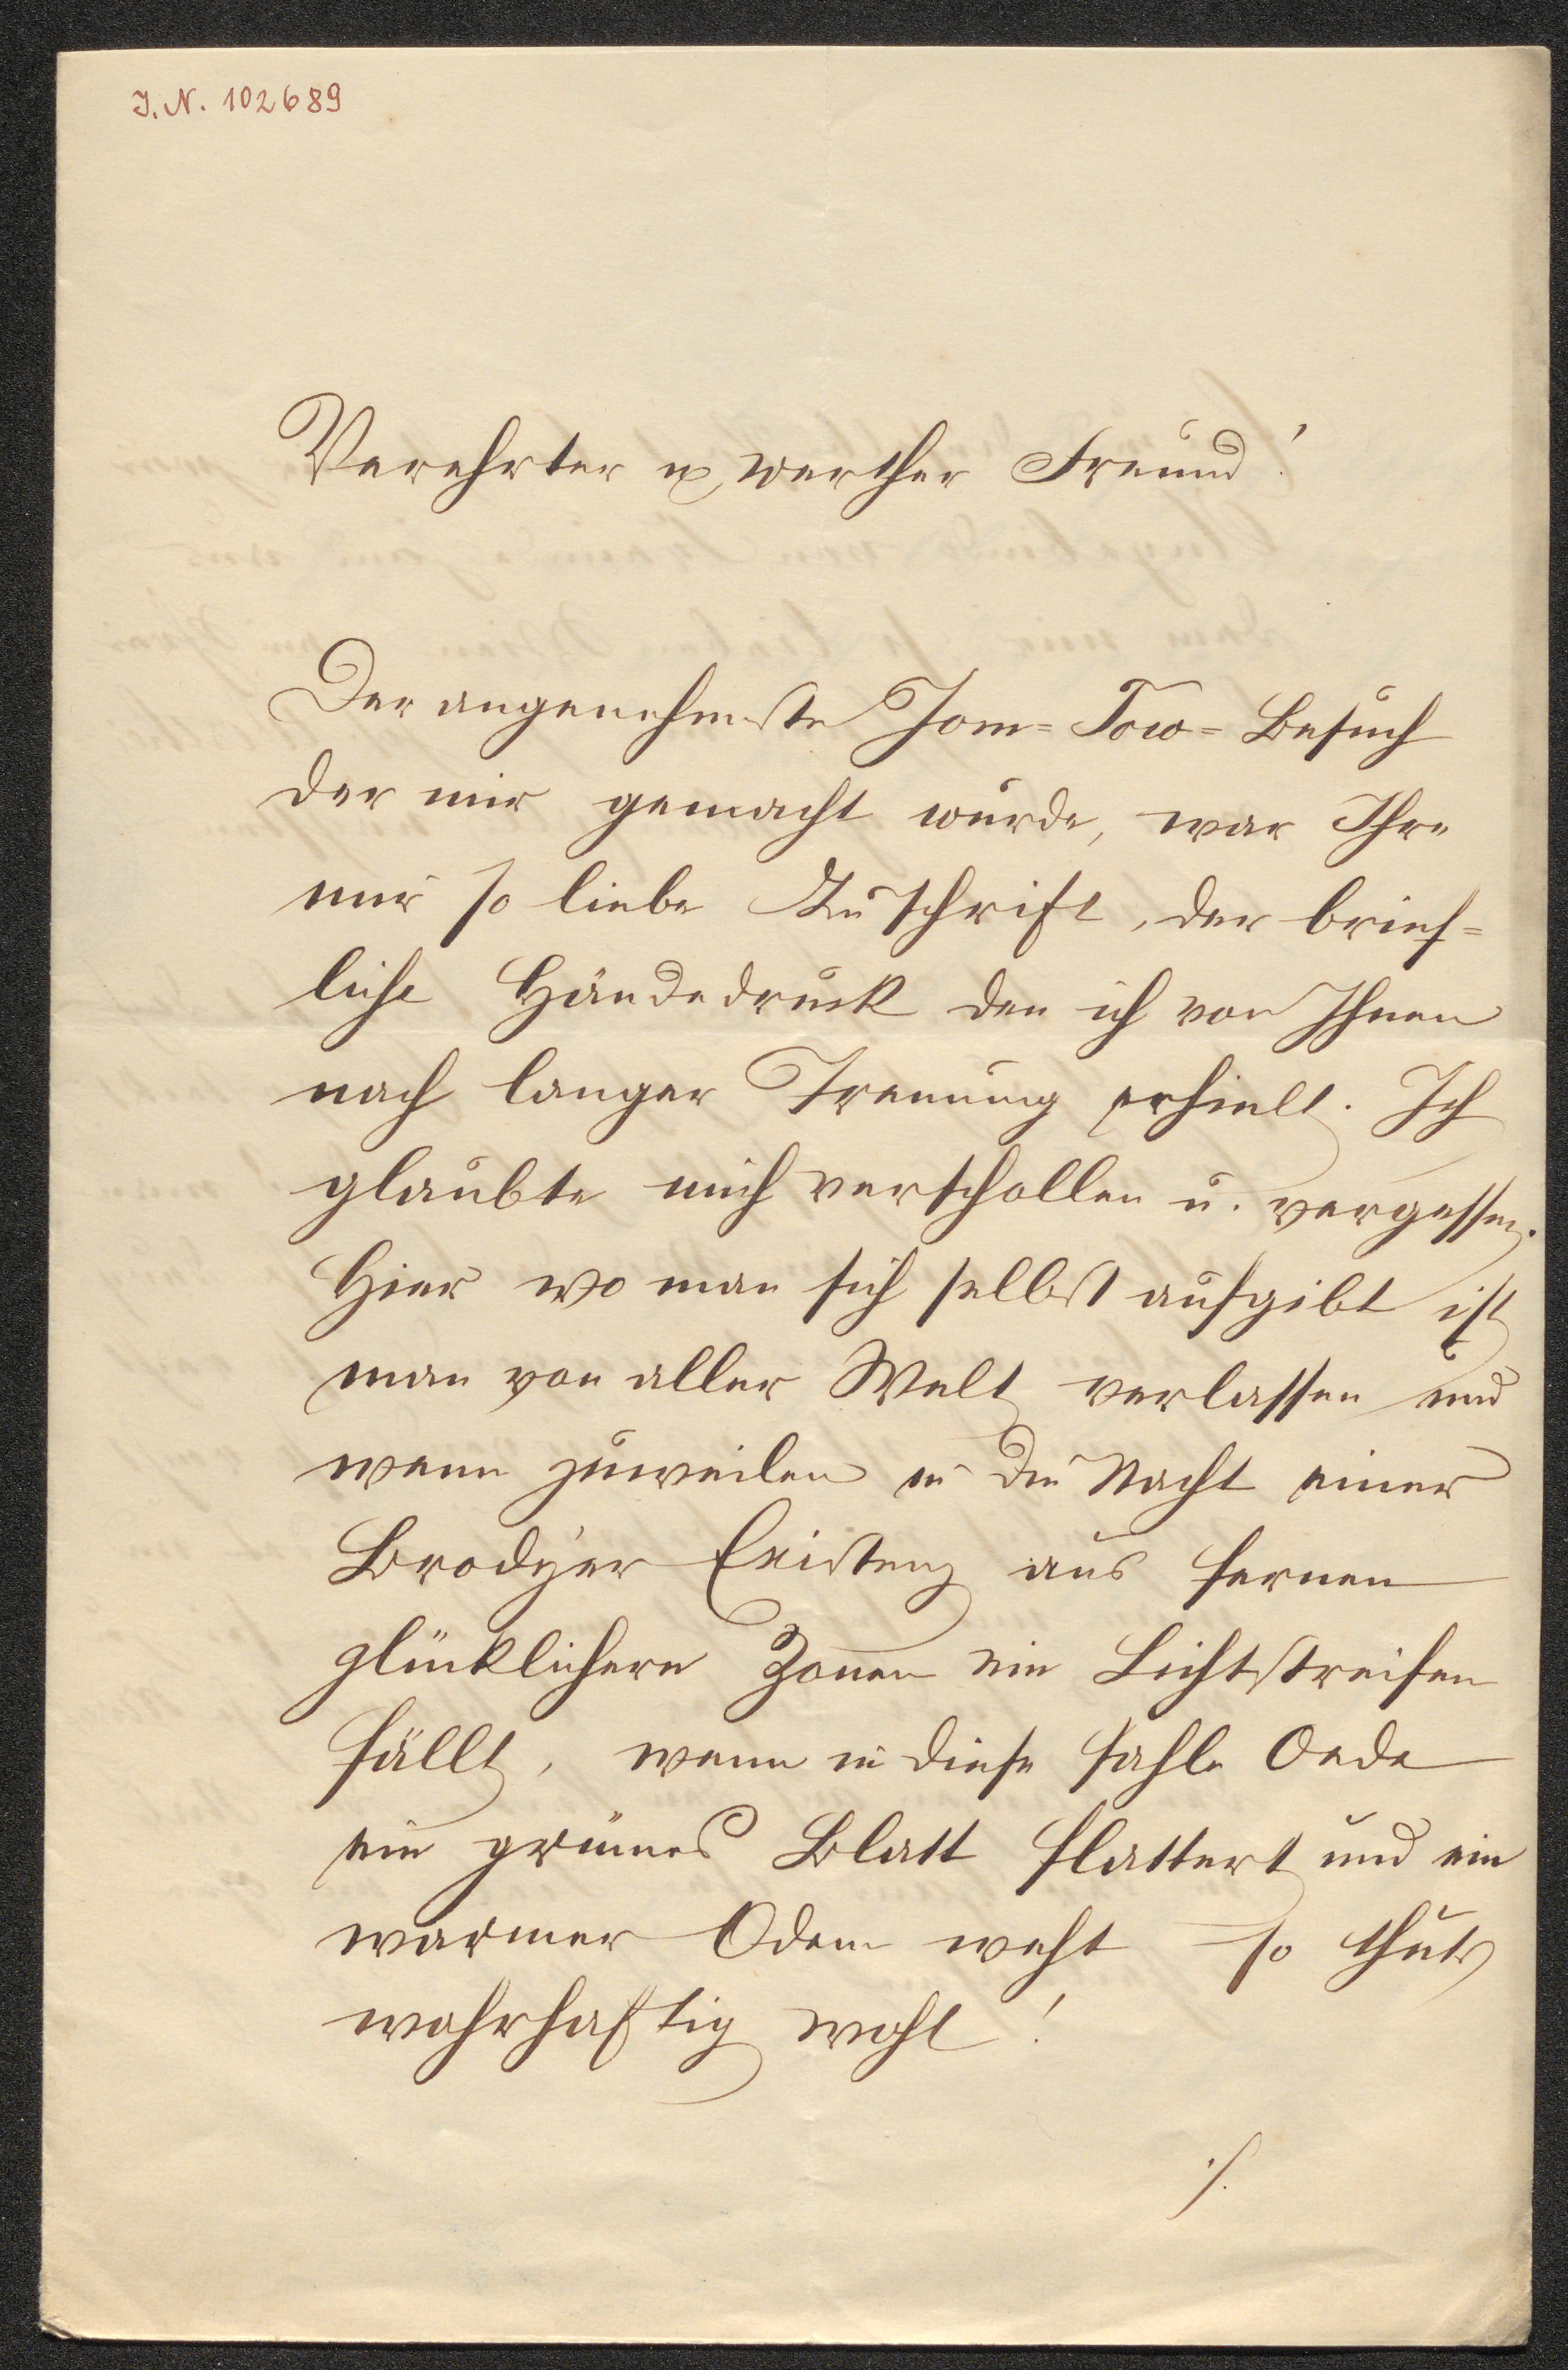 J. N. 102689
Verehrter u. werther Freund!
Der angenehmste Jom=Tow=Besuch
der mir gemacht wurde, war Ihre
mir so liebe Zuschrift, der brief=
liche Händedruck den ich von Ihnen
nach langer Trennung erhielt. Ich
glaubte mich verschollen u. vergessen.
Hier wo man sich selbst aufgibt ist
man von aller Welt verlassen und
wenn zuweilen in die Nacht einer
Brodyer Existenz aus fernen
glücklichern Zonen ein Lichtstreifen
fällt, wenn in diese fahle Oede
ein grünes Blatt flattert und ein
warmer Odem weht – so thuts
wahrhaftig wohl!
./.